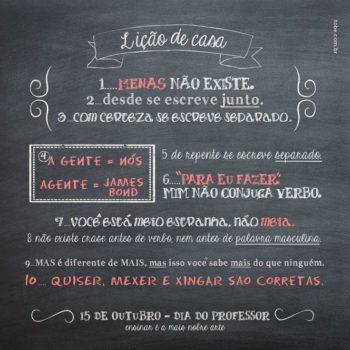 Lição de casa
1....MENAS NÃO EXISTE.
2...desde se escreve junto.
3...COM CERTEZA SE ESCREVE SEPARADO.
4 A GENTE = NÓS
AGENTE = JAMES
BOND
5 de repente se escreve separado.
6...."PARA EU FAZER"
MIM NÃO CONJUGA VERBO.
7...VOCÊ ESTÁ MEIO ESTRANHA, NÃO MEIA.
8 não existe crase antes de verbo, nem antes de palavra masculina.
9...MAS é diferente de MAIS, mas isso você sabe mais do que ninguém.
10.... QUISER, MEXER E XINGAR SÃO CORRETAS.
15 DE OUTUBRO - DIA DO PROFESSOR
ensinar é a mais nobre arte